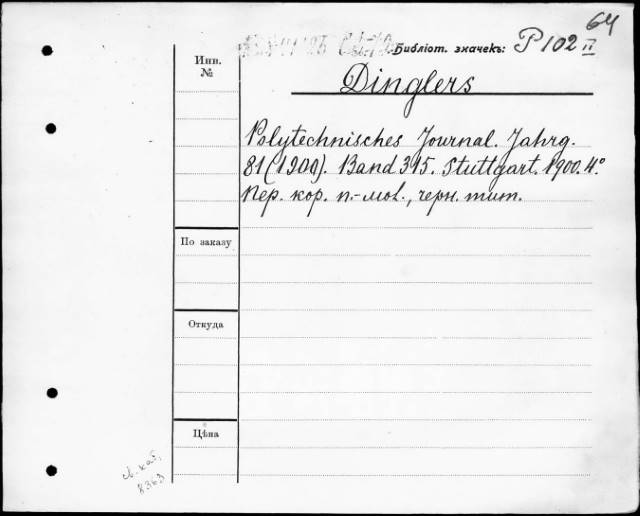 64
Библіот. значекъ: P 102 II
Инн.
№
Dinglers
Polytechnisches Journal. Jahrg.
81 (1900). Band 315. Stuttgart. 1900. 4°
Пер. кор. п.-мол., черн. тит.
По заказу
Откуда
Цѣна
св. каб.
8363